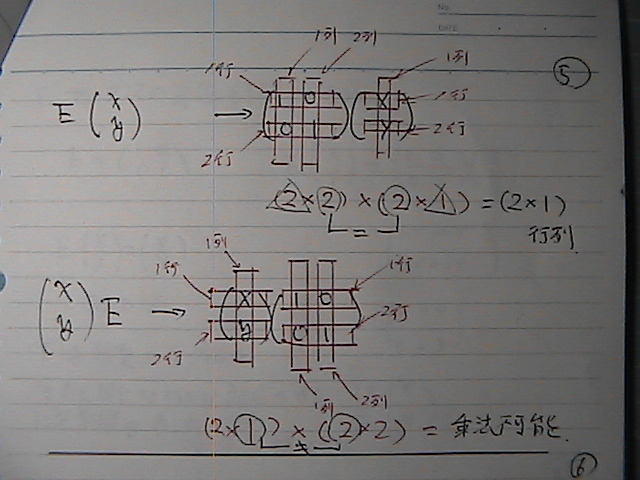 No.
DATE
⑤
1列 2列
1列
1行 1行
E (x y) → (1 0 0 1) (x y)
2行 2行
(2×2) × (2×1) = (2×1)
=
行列
1列
1行 1行
(x y) E → (x y) (1 0 0 1)
2行 2行
1列 2列
(2×1) × (2×2) = 乗法不可能
≠
⑥